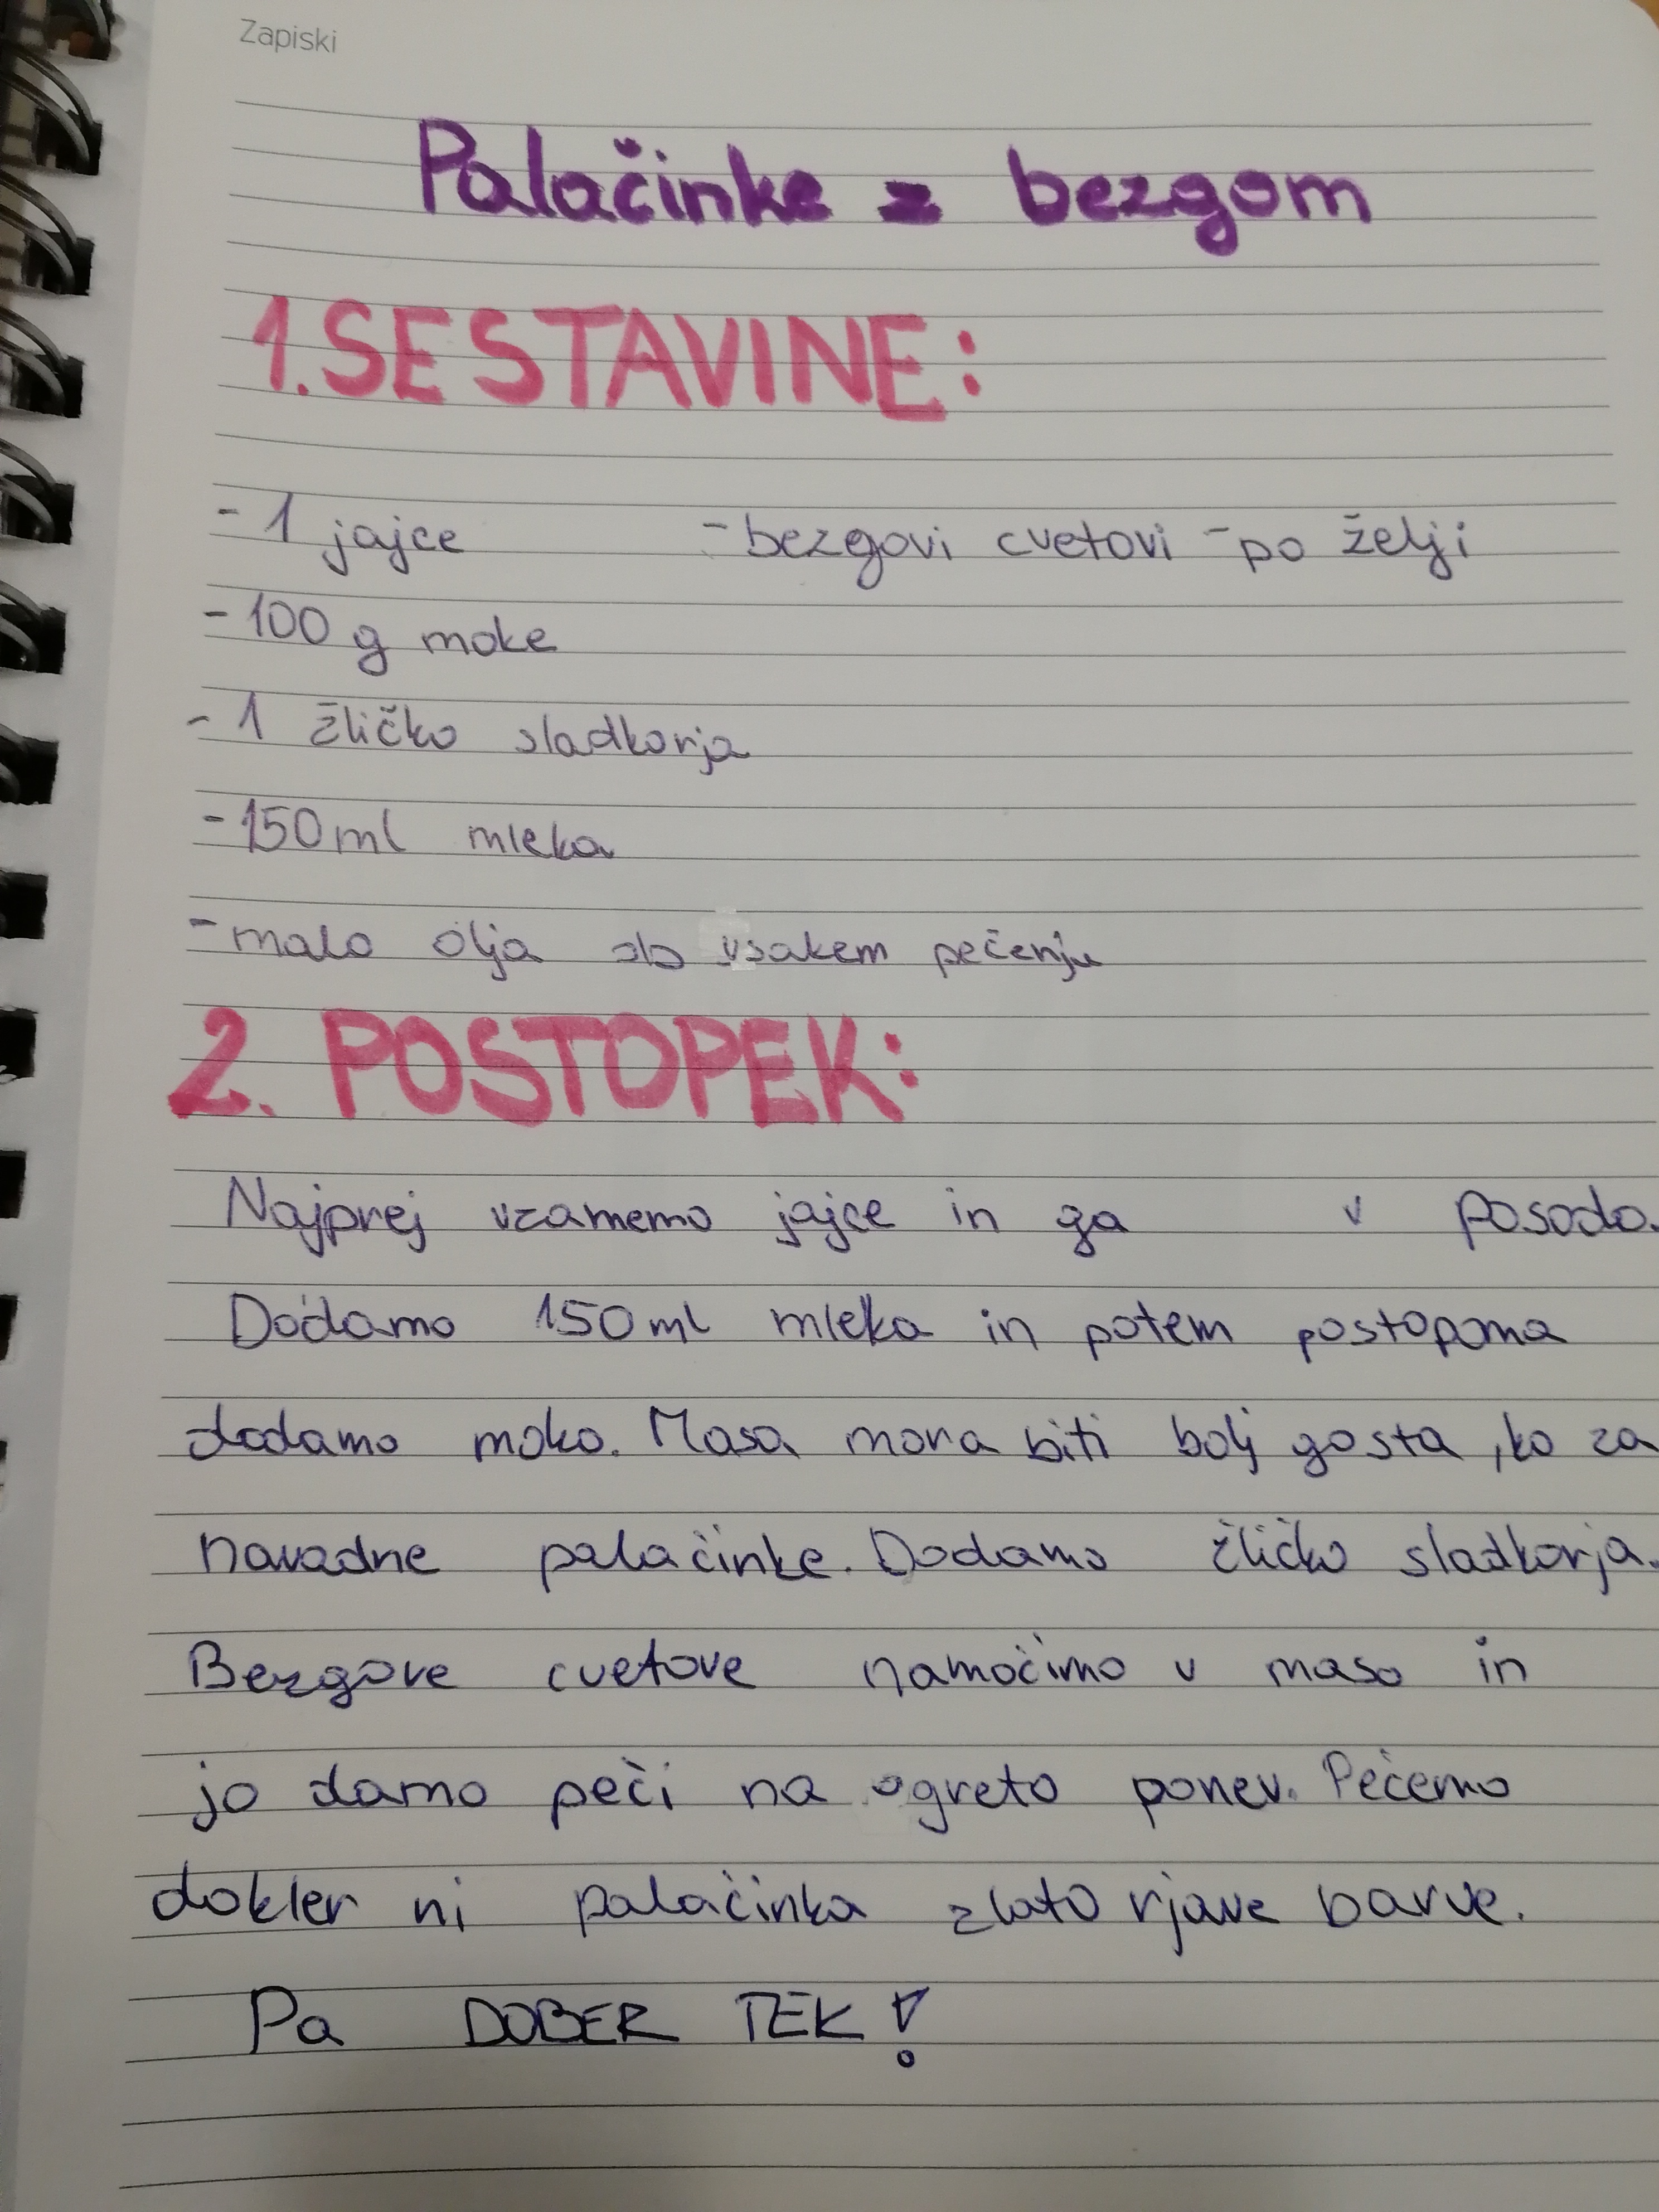 Zapiski
Palačinke z bezgom
1. SESTAVINE:
- 1 jajce -bezgovi cvetovi - po želji
- 100 g moke
- 1 žličko sladkorja
- 150 ml mleka
- malo olja ob vsakem pečenju
2. POSTOPEK:
Najprej vzamemo jajce in ga v posodo.
Dodamo 150 ml mleka in potem postopoma
dodamo moko. Masa mora biti bolj gosta, ko za
navadne palačinke. Dodamo žličko sladkorja.
Bezgove cvetove namočimo v maso in
jo damo peči na ogreto ponev. Pečemo
dokler ni palačinka zlato rjave barve.
Pa DOBER TEK!